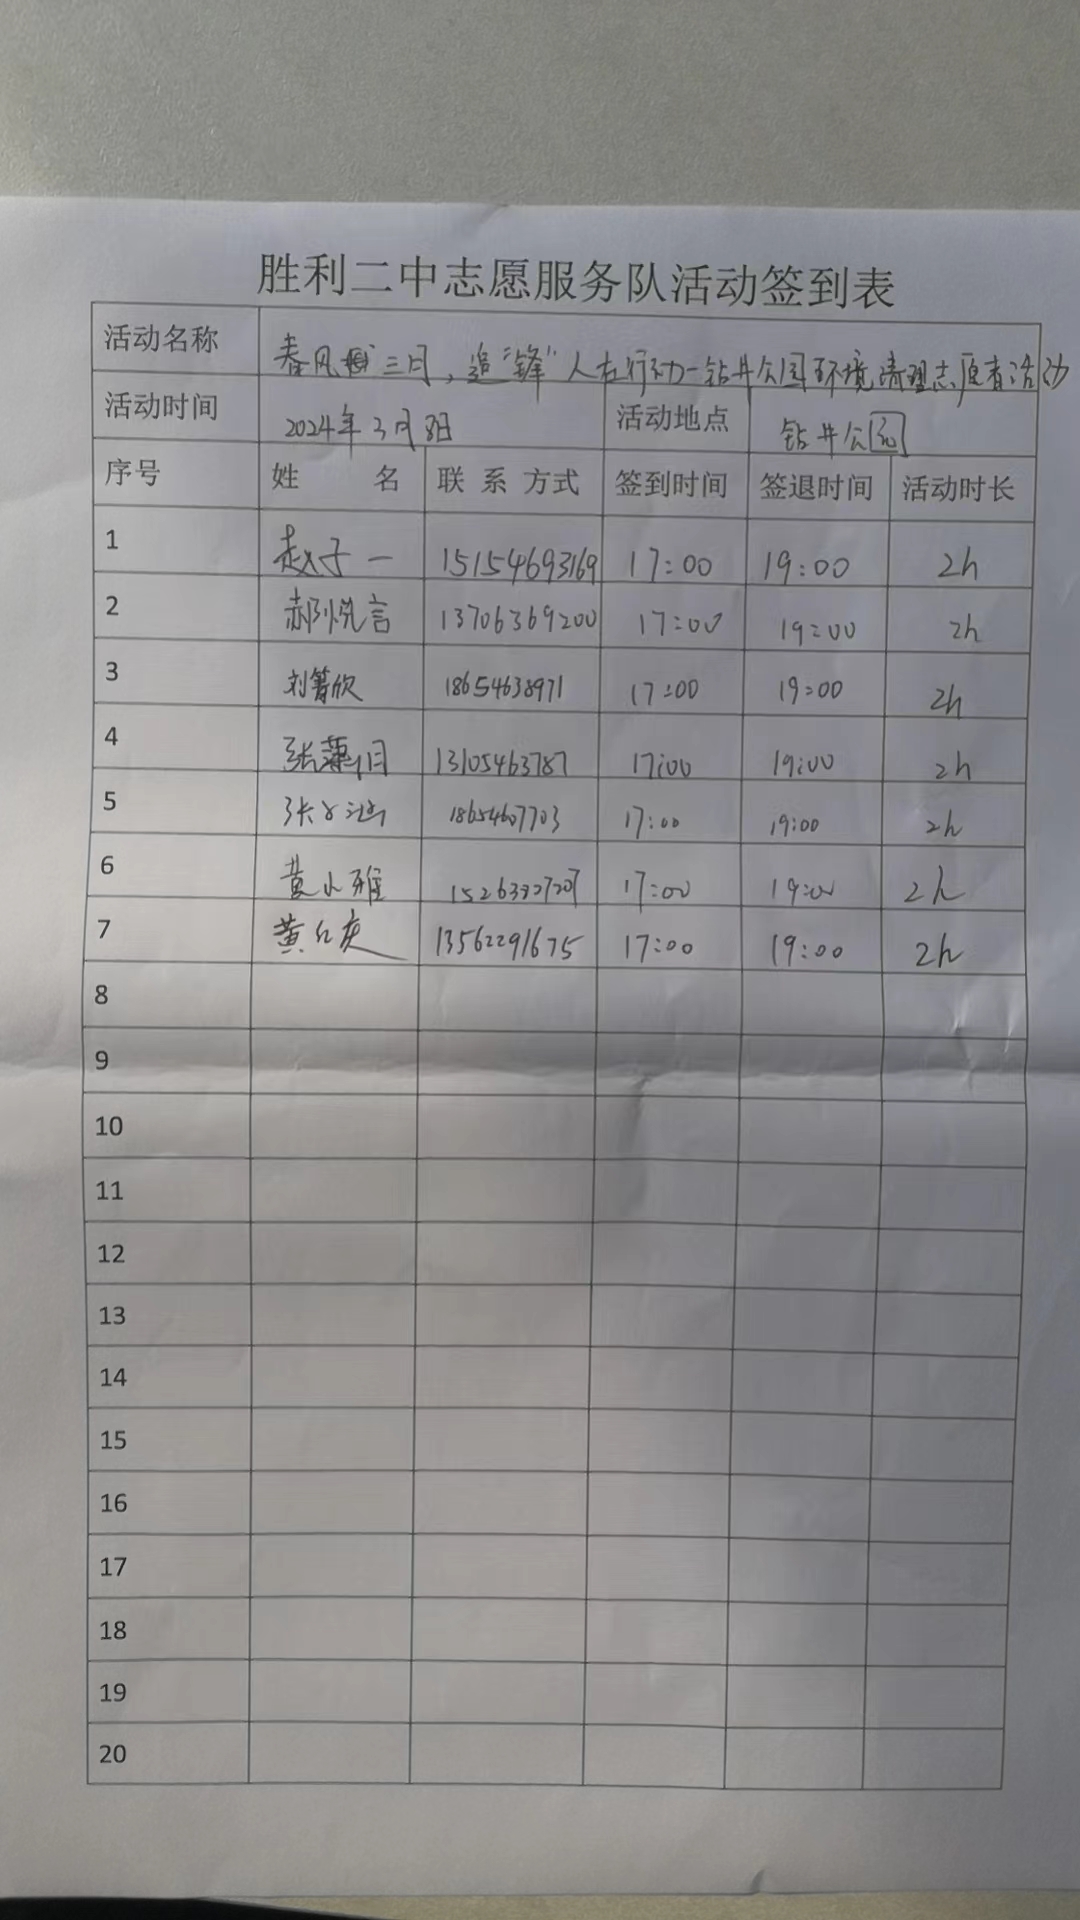 胜利二中志愿服务队活动签到表
活动名称 春风 三月，追“锋”人在行动-钻井公园环境清理志愿者活动
活动时间 2024年3月8日 活动地点 钻井公园
序号 姓 名 联 系 方式 签到时间 签退时间 活动时长
1 赵子一 15154693169 17:00 19:00 2h
2 郝悦言 13706369200 17:00 19:00 2h
3 刘箬欣 18654638971 17:00 19:00 2h
4 张 13105463787 17:00 19:00 2h
5 张 18654607703 17:00 19:00 2h
6 黄小雅 17:00 19:00 2h
7 黄 13562291675 17:00 19:00 2h
8
9
10
11
12
13
14
15
16
17
18
19
20